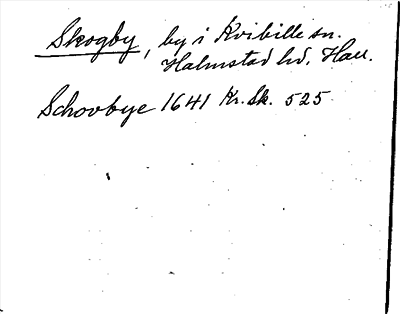 Skogby, by i Kvibille sn.
Halmstad hd, Hall.
Schovbye 1641 Kr. Sk. 525